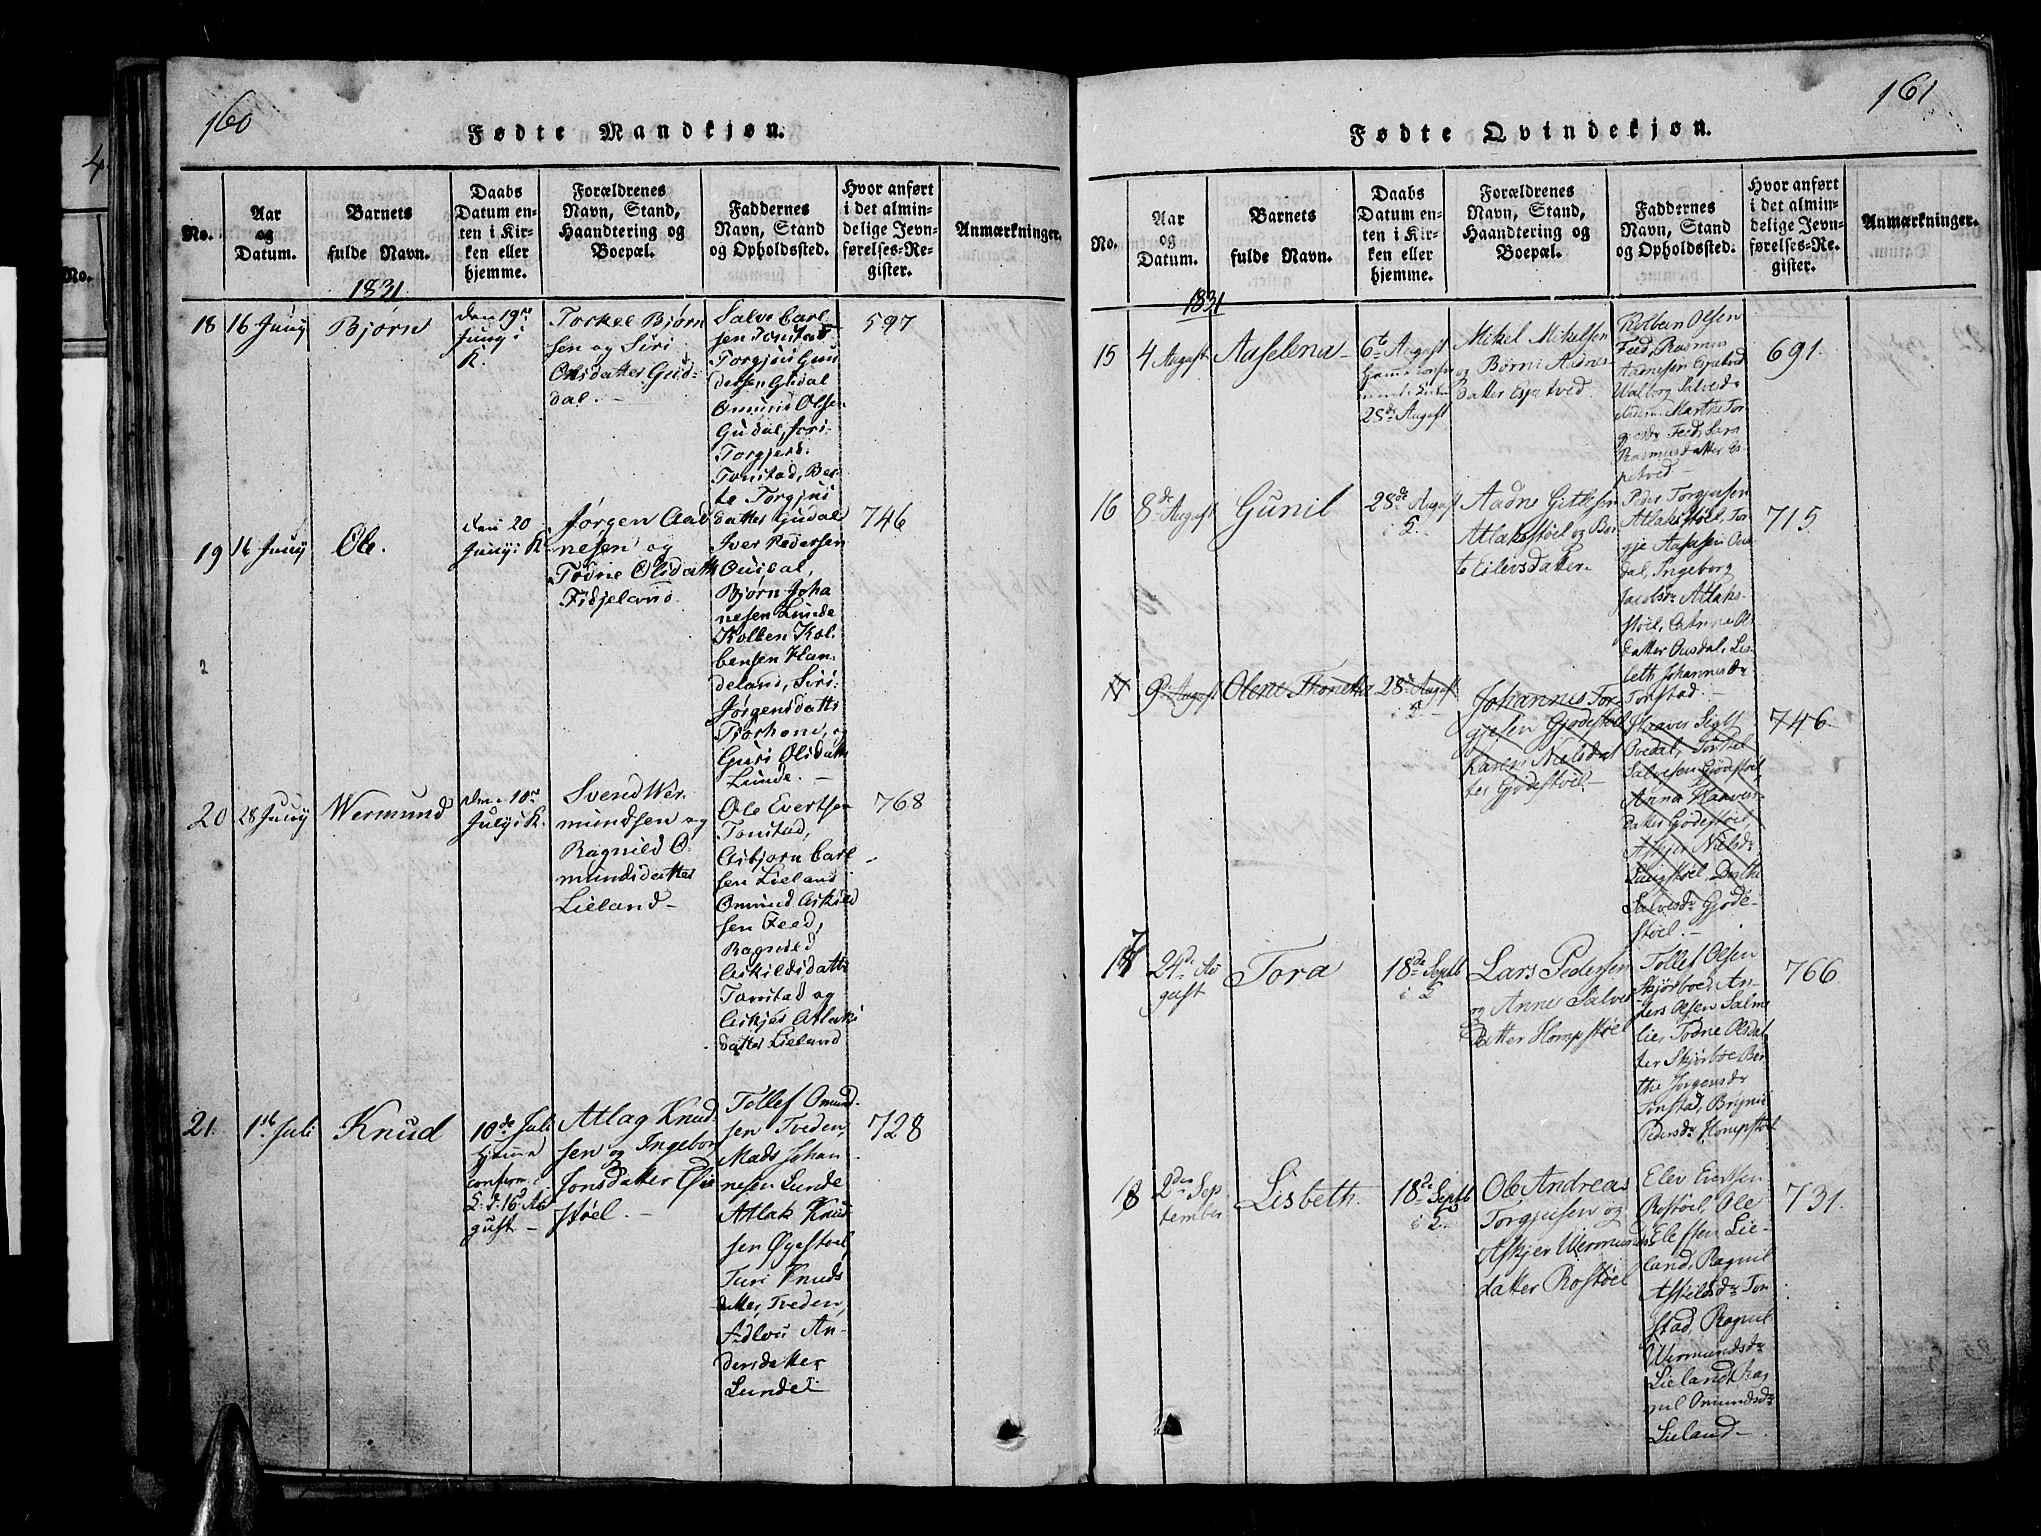 160
Fødte Mandkjøn.
No.
Aar
og
Datum.
Barnets
fulde Navn.
Daabs
Datum en-
ten i Kir-
ken eller
hjemme.
Forældrenes
Navn, Stand,
Haandtering og
Boepæl.
Faddernes
Navn, Stand
og Opholdssted.
Hvor anført
i det almin-
delige Jevn-
førelses-Re-
gister.
Anmærkninger.
1831
18
16 Juny
Bjørn
den 19de
Juny i
K.
Torkel Bjørn
sen og Siri
Olsdatter Gud-
dal.
Salve Carl
sen Tonstad
Torgjus Gun
dersen Gudal
Omund Olsen
Gudal, Siri
Torgjersd.
Tonstad, Ber-
te Torgjus
datter Gudal
597
19
16 Juny
Ole.
den 20
Juny i K.
Jørgen Aad
nesen og
Todne Olsdatt
Fidjeland
Iver Pedersen
Ousdal,
Bjørn Joha
nesen Lunde
Kolben Kol-
bensen Han-
deland, Siri
Jørgensdatt
Tjorhom, og
Guri Olsdatt
Lunde.
746
20
28 Juny
Wermund
den 10de
July i K.
Svend Wer-
mundsen og
Ragnild O-
mundsdatter
Lieland
Ole Evertsen
Tonstad,
Asbjorn Carl
sen Lieland
Omund Askild
sen Feed,
Ragnild
Askildsdatt
Tonstad og
Askjer Atlaks
datter Lieland
768
21.
1ste Juli
Knud
10de Juli
hjemme
confirm.
gust
Atlag Knud
sen og Ingebor
Jonsdatter Øie
støel.
Tollef Omund-
sen Tveden,
Mads Johan
nesen Lunde
Atlak Knud
sen Øyestoel,
Turi Knuds
datter, Tveden,
An-
dersdatter
Lunde
728
161
Fødte Qvindekjøn.
No.
Aar
og
Datum.
Barnets
fulde Navn.
Daabs
Datum en-
ten i Kir-
ken eller
hjemme.
Forældrenes
Navn, Stand,
Haandtering og
Boepæl.
Faddernes
Navn, Stand
og Opholdssted.
Hvor anført
i det almin-
delige Jevn-
førelses-Re-
gister.
Anmærkninger.
1831
15
4 August
Aaselena
6te August
28de August
Mikel Mikelsen
og Børni Aadnes
datter Espetved
Kolben Olsen
Feed, Rasmus
Aadnesen Espetved
Walborg
Marthe Tor-
Feed, Sara
Rasmusdatter Es
petved
691.
16
8de August
Gunil
28de August
Aadne Gitlesen
Atlakstøel og Ber
te Eilevsdatter
Peder Torgjusen
Atlakstøel, Tor-
gje Aasesen Ous
dal, Ingeborg
Jacobsdr Atlak-
støel, Ol
datter Ousdal, Lis
beth Johannisdr
Tonstad.
715.
17
9de August
Olene Thonette
28de August
Johannes Tor-
gjesen Gjodestoel
Karen Nielsdat
ter Gjodestoel
Haaver
Ovedal,
Salvesen Gjodestoel
Anna Haavers
datter Gjodestoel
Askjer Nielsdr
Dorthe
Salvesdr Gjode-
støel.
746.
17
24de Au
gust
Tora
18de Septb
Lars Pedersen
og Anne Salves
datter Hompstøel
Tollef Olsen
Skjørboe, An-
ders Olsen Salme
lie, Todne Olsdat
ter Skjørboe Ber
the Jorgensdr
Tonstad,
Pedersdr Hompstoel
766
18
2den Sep
tember
Lisbeth
18de Septb
Ole Andreas
Torgjusen og
Askjer Wermunds
datter Rostøel
Elev Evertsen
Rostøel, Ole
Elefsen Lie-
land, Ragnil
Askildsdr Ton
stad, Ragnil
Wermundsdr
Lieland Rag
nil Omundsdr
Lieland
731.